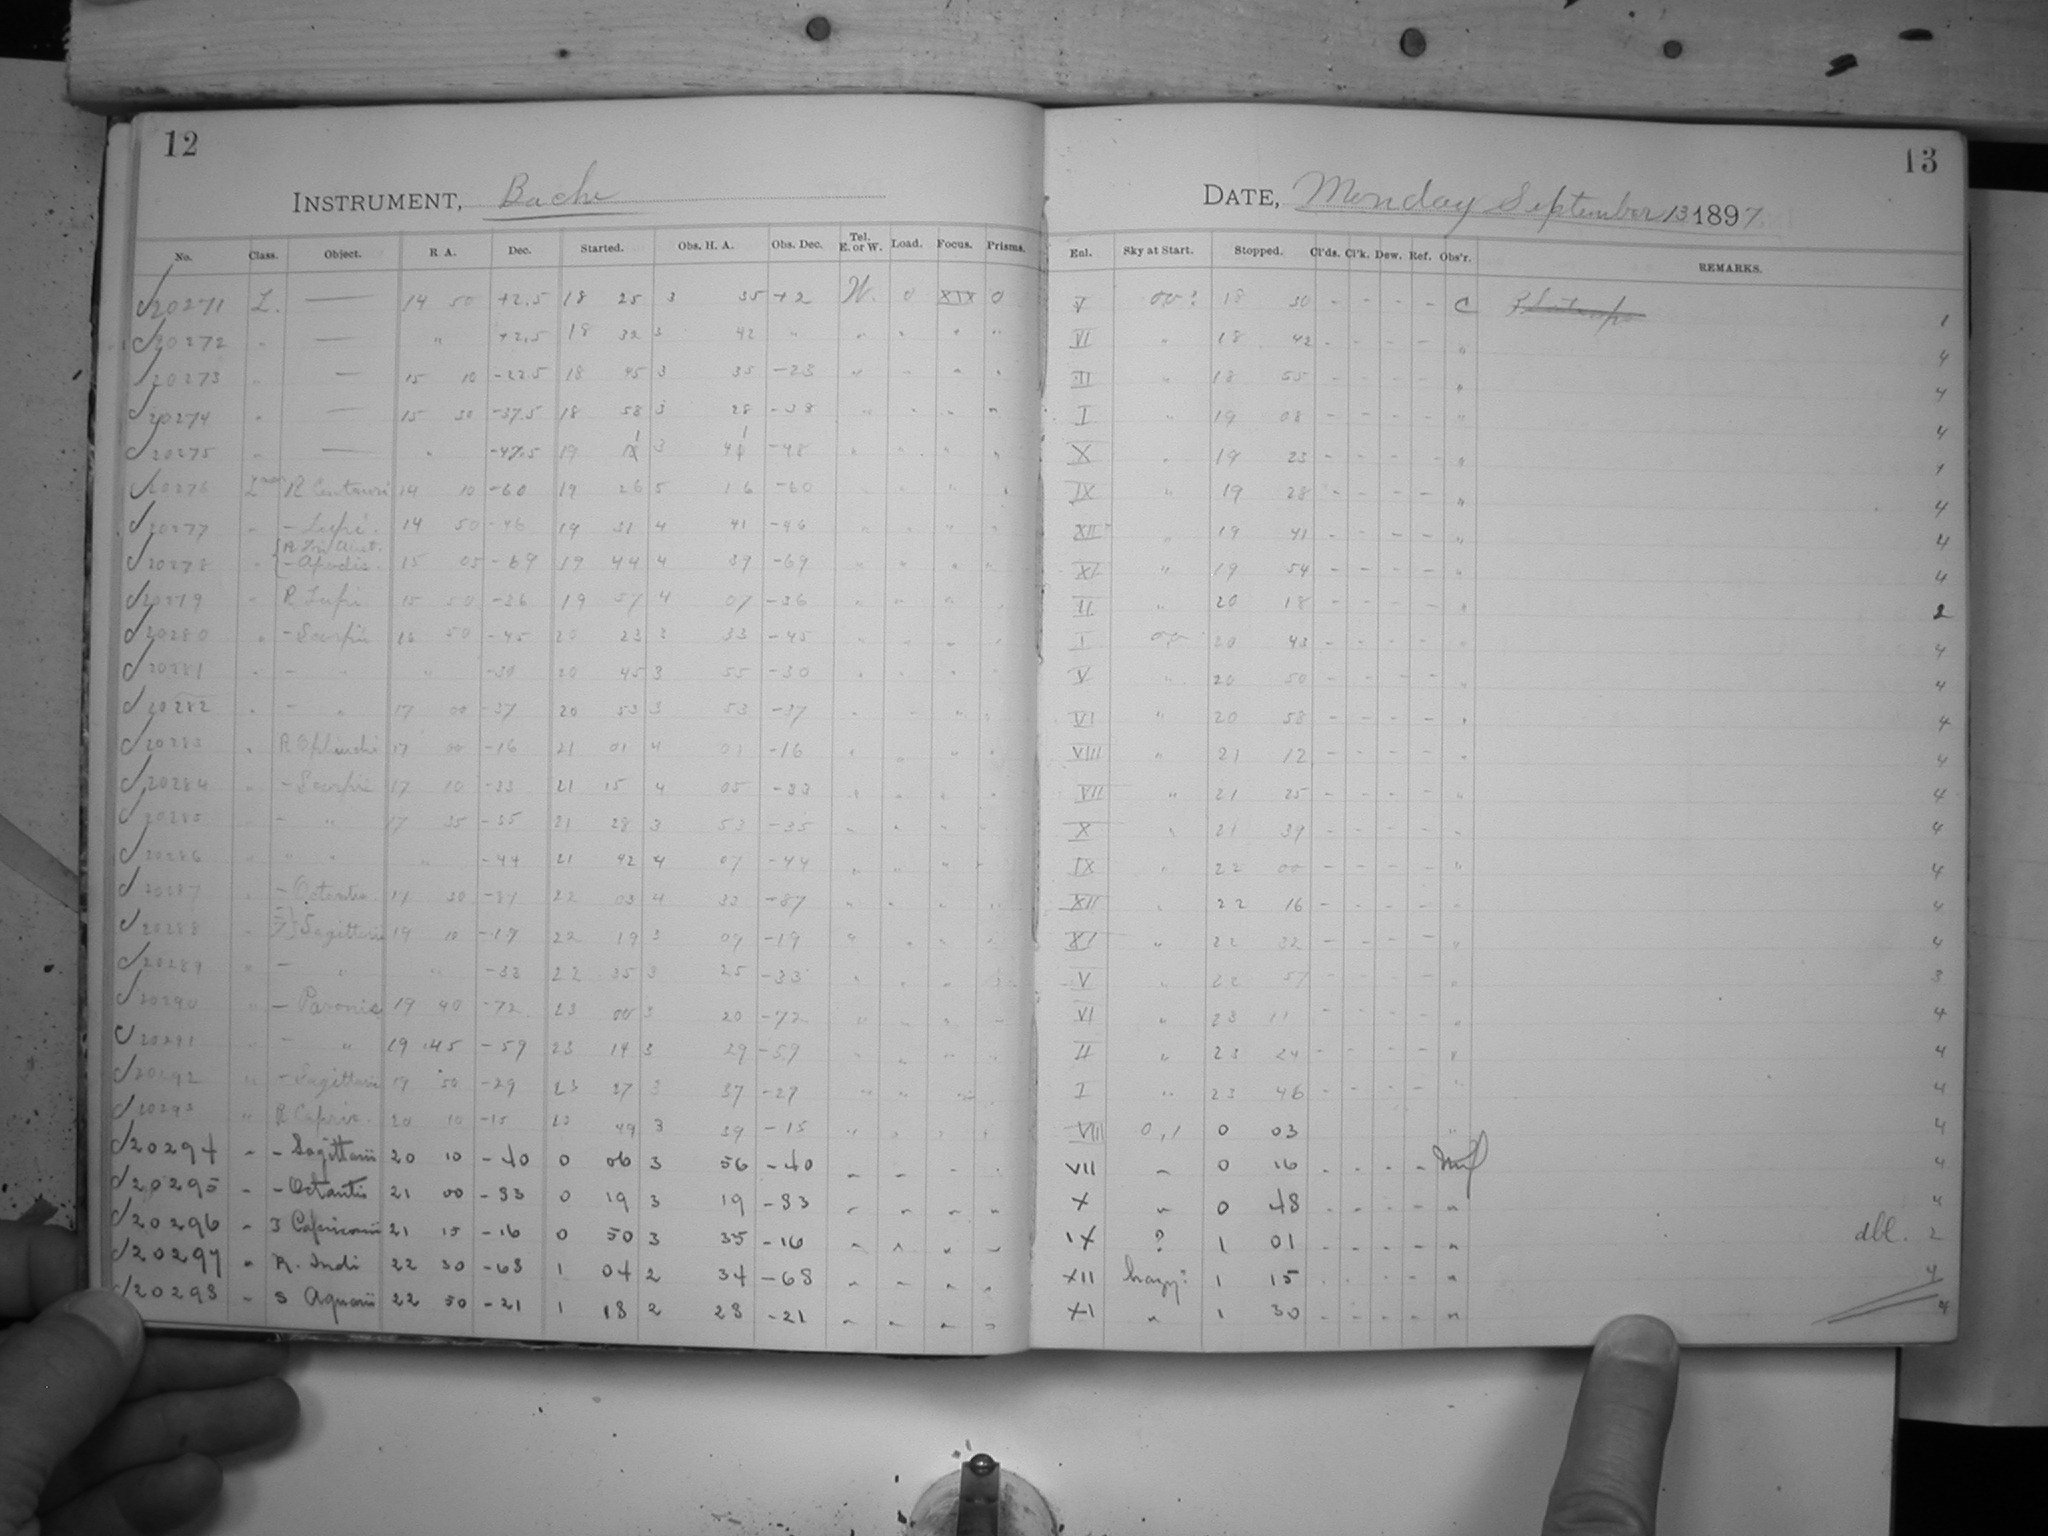 12
INSTRUMENT, Bache
No. Class. Object. R A. Dec. Started. Obs. H. A. Obs. Dec. Tel. E. or W. Load. Focus. Prisms.
20271 L. — 14 50 +2.5 18 25 3 35 +2 W. 0 XIX 0
20272 " — " +2.5 18 32 3 42 " " " " "
20273 " — 15 10 -22.5 18 45 3 35 -23 " " " "
20274 " — 15 30 -37.5 18 58 3 28 -38 " " " "
20275 " — " -47.5 19 3 -48 " " " "
20276 R Centauri 14 10 -60 19 26 5 16 -60 " " " "
20277 " - Lupi. 14 50 -46 19 31 4 41 -46 " " " "
20278 " { R Tri. Aust. - Apodis. 15 05 -69 19 44 4 39 -69 " " " "
20279 " R Lupi 15 50 -36 19 57 4 07 -36 " " " "
20280 " - Scorpii 16 50 -45 20 23 3 33 -45 " " " "
20281 " - " " -30 20 45 3 55 -30 " " " "
20282 " - " 17 00 -37 20 53 3 53 -37 " " " "
20283 " R Ophiuchi 17 00 -16 21 01 4 01 -16 " " " "
20284 " - Scorpii 17 10 -33 21 15 4 05 -33 " " " "
20285 " - " 17 35 -35 21 28 3 53 -35 " " " "
20286 " " " " -44 21 42 4 07 -44 " " " "
20287 " - Octantis 17 30 -87 22 03 4 33 -87 " " " "
20288 " Sagittarii 19 10 -19 22 19 3 09 -19 " " " "
20289 " - " " -33 22 35 3 25 -33 " " " "
20290 " - Pavonis 19 40 -72 23 00 3 20 -72 " " " "
20291 " - " 19 45 -59 23 14 3 29 -59 " " " "
20292 " - Sagittarii 19 50 -29 23 27 3 37 -29 " " " "
20293 " R Capric. 20 10 -15 23 49 3 39 -15 " " " "
20294 " - Sagittarii 20 10 -40 0 06 3 56 -40 " " " "
20295 " - Octantis 21 00 -83 0 19 3 19 -83 " " " "
20296 " T Capricorni 21 15 -16 0 50 3 35 -16 " " " "
20297 " R. Indi 22 30 -68 1 04 2 34 -68 " " " "
20298 " S Aquarii 22 50 -21 1 18 2 28 -21 " " " "
13
DATE, Monday September 13 1897.
Enl. Sky at Start. Stopped. Cl'ds. Cl'k. Dew. Ref. Obs'r. REMARKS.
V 18 30 - - - - C 1
VI " 18 42 - - - - " 4
III " 18 55 - - - - " 4
I " 19 08 - - - - " 4
X " 19 23 - - - - "
IX " 19 28 - - - - " 4
XII " 19 41 - - - - " 4
XI " 19 54 - - - - " 4
II " 20 18 - - - - " 2
I 20 43 - - - - " 4
V " 20 50 - - - - " 4
VI " 20 58 - - - - " 4
VIII " 21 12 - - - - " 4
VII " 21 25 - - - - " 4
X " 21 39 - - - - " 4
IX " 22 00 - - - - " 4
XII " 22 16 - - - - " 4
XI " 22 32 - - - - " 4
V " 22 57 - - - - " 3
VI " 23 11 - - - - " 4
II " 23 24 - - - - " 4
I " 23 46 - - - - " 4
VIII 0,1 0 03 " 4
VII " 0 16 - - - - 4
X " 0 48 - - - - " 4
IX ? 1 01 - - - - " dbl. 2
XII hazy: 1 15 - - - - " 4
XI " 1 30 - - - - " 4